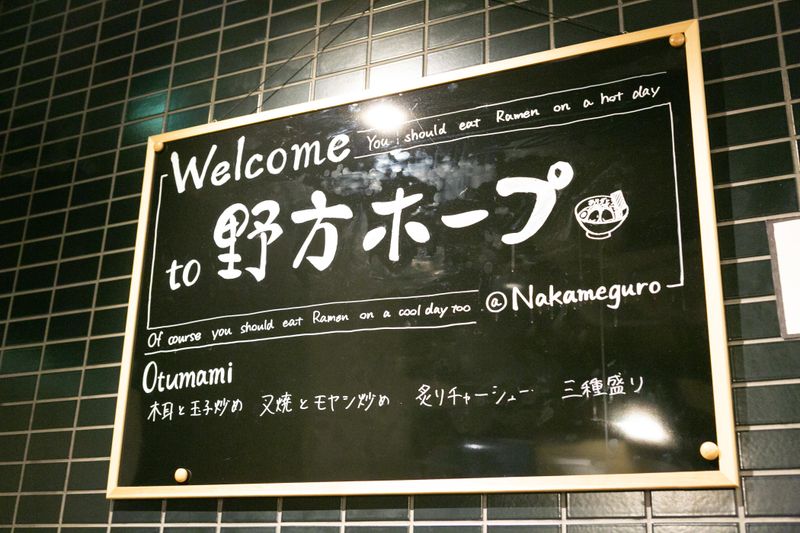 Welcome You should eat Ramen on a hot day
to 野方ホープ
@Nakameguro
Of course you should eat Ramen on a cool day too
Otumami
木耳と玉子炒め 叉焼とモヤシ炒め 炙りチャーシュー 三種盛り